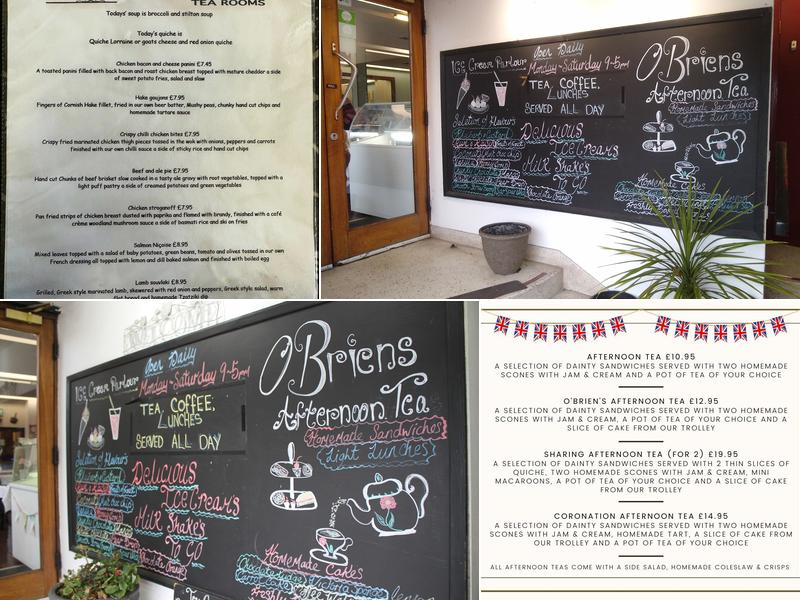 TEA ROOMS
Todays' soup is broccoli and stilton soup
Today's quiche is
Quiche Lorraine or goats cheese and red onion quiche
Chicken bacon and cheese panini £7.45
A toasted panini filled with back bacon and roast chicken breast topped with mature chedder a side
of sweet potato fries, salad and slaw
Hake goujons £7.95
Fingers of Cornish Hake fillet, fried in our own beer batter, Mushy peas, chunky hand cut chips and
homemade tartare sauce
Crispy chilli chicken bites £7.95
Crispy fried marinated chicken thigh pieces tossed in the wok with onions, peppers and carrots
finished with our own chilli sauce a side of sticky rice and hand cut chips
Beef and ale pie £7.95
Hand cut Chunks of beef brisket slow cooked in a tasty ale gravy with root vegetables, topped with a
light puff pastry a side of creamed potatoes and green vegetables
Chicken stroganoff £7.95
Pan fried strips of chicken breast dusted with paprika and flamed with brandy, finished with a café
crème woodland mushroom sauce a side of basmati rice and ski on fries
Salmon Niçoise £8.95
Mixed leaves topped with a salad of baby potatoes, green beans, tomato and olives tossed in our own
French dressing all topped with lemon and dill baked salmon and finished with boiled egg
Lamb souvlaki £8.95
Grilled, Greek style marinated lamb, skewered with red onion and peppers, Greek style salad, warm
flat bread and homemade Tzatziki dip
ICE Cream Parlour
Open Daily
Monday-Saturday 9-5pm
TEA, COFFEE,
LUNCHES
SERVED ALL DAY
Selection of Flavours
Delicious
Ice Creams
Milk Shakes
To Go
O'Briens
Afternoon Tea
HomeMade Sandwiches
Light Lunches
HomeMade Cakes
ICE Cream Parlour
Open Daily
Monday-Saturday 9-5pm
TEA, COFFEE,
LUNCHES
SERVED ALL DAY
Selection of Flavours
Delicious
Ice Creams
Milk Shakes
To Go
O'Briens
Afternoon Tea
HomeMade Sandwiches
Light Lunches
HomeMade Cakes
Freshly
AFTERNOON TEA £10.95
A SELECTION OF DAINTY SANDWICHES SERVED WITH TWO HOMEMADE
SCONES WITH JAM & CREAM AND A POT OF TEA OF YOUR CHOICE
O'BRIEN'S AFTERNOON TEA £12.95
A SELECTION OF DAINTY SANDWICHES SERVED WITH TWO HOMEMADE
SCONES WITH JAM & CREAM, A POT OF TEA OF YOUR CHOICE AND A
SLICE OF CAKE FROM OUR TROLLEY
SHARING AFTERNOON TEA (FOR 2) £19.95
A SELECTION OF DAINTY SANDWICHES SERVED WITH 2 THIN SLICES OF
QUICHE, TWO HOMEMADE SCONES WITH JAM & CREAM, MINI
MACAROONS, A POT OF TEA OF YOUR CHOICE AND A SLICE OF CAKE
FROM OUR TROLLEY
CORONATION AFTERNOON TEA £14.95
A SELECTION OF DAINTY SANDWICHES SERVED WITH TWO HOMEMADE
SCONES WITH JAM & CREAM, HOMEMADE TART, A SLICE OF CAKE FROM
OUR TROLLEY AND A POT OF TEA OF YOUR CHOICE
ALL AFTERNOON TEAS COME WITH A SIDE SALAD, HOMEMADE COLESLAW & CRISPS